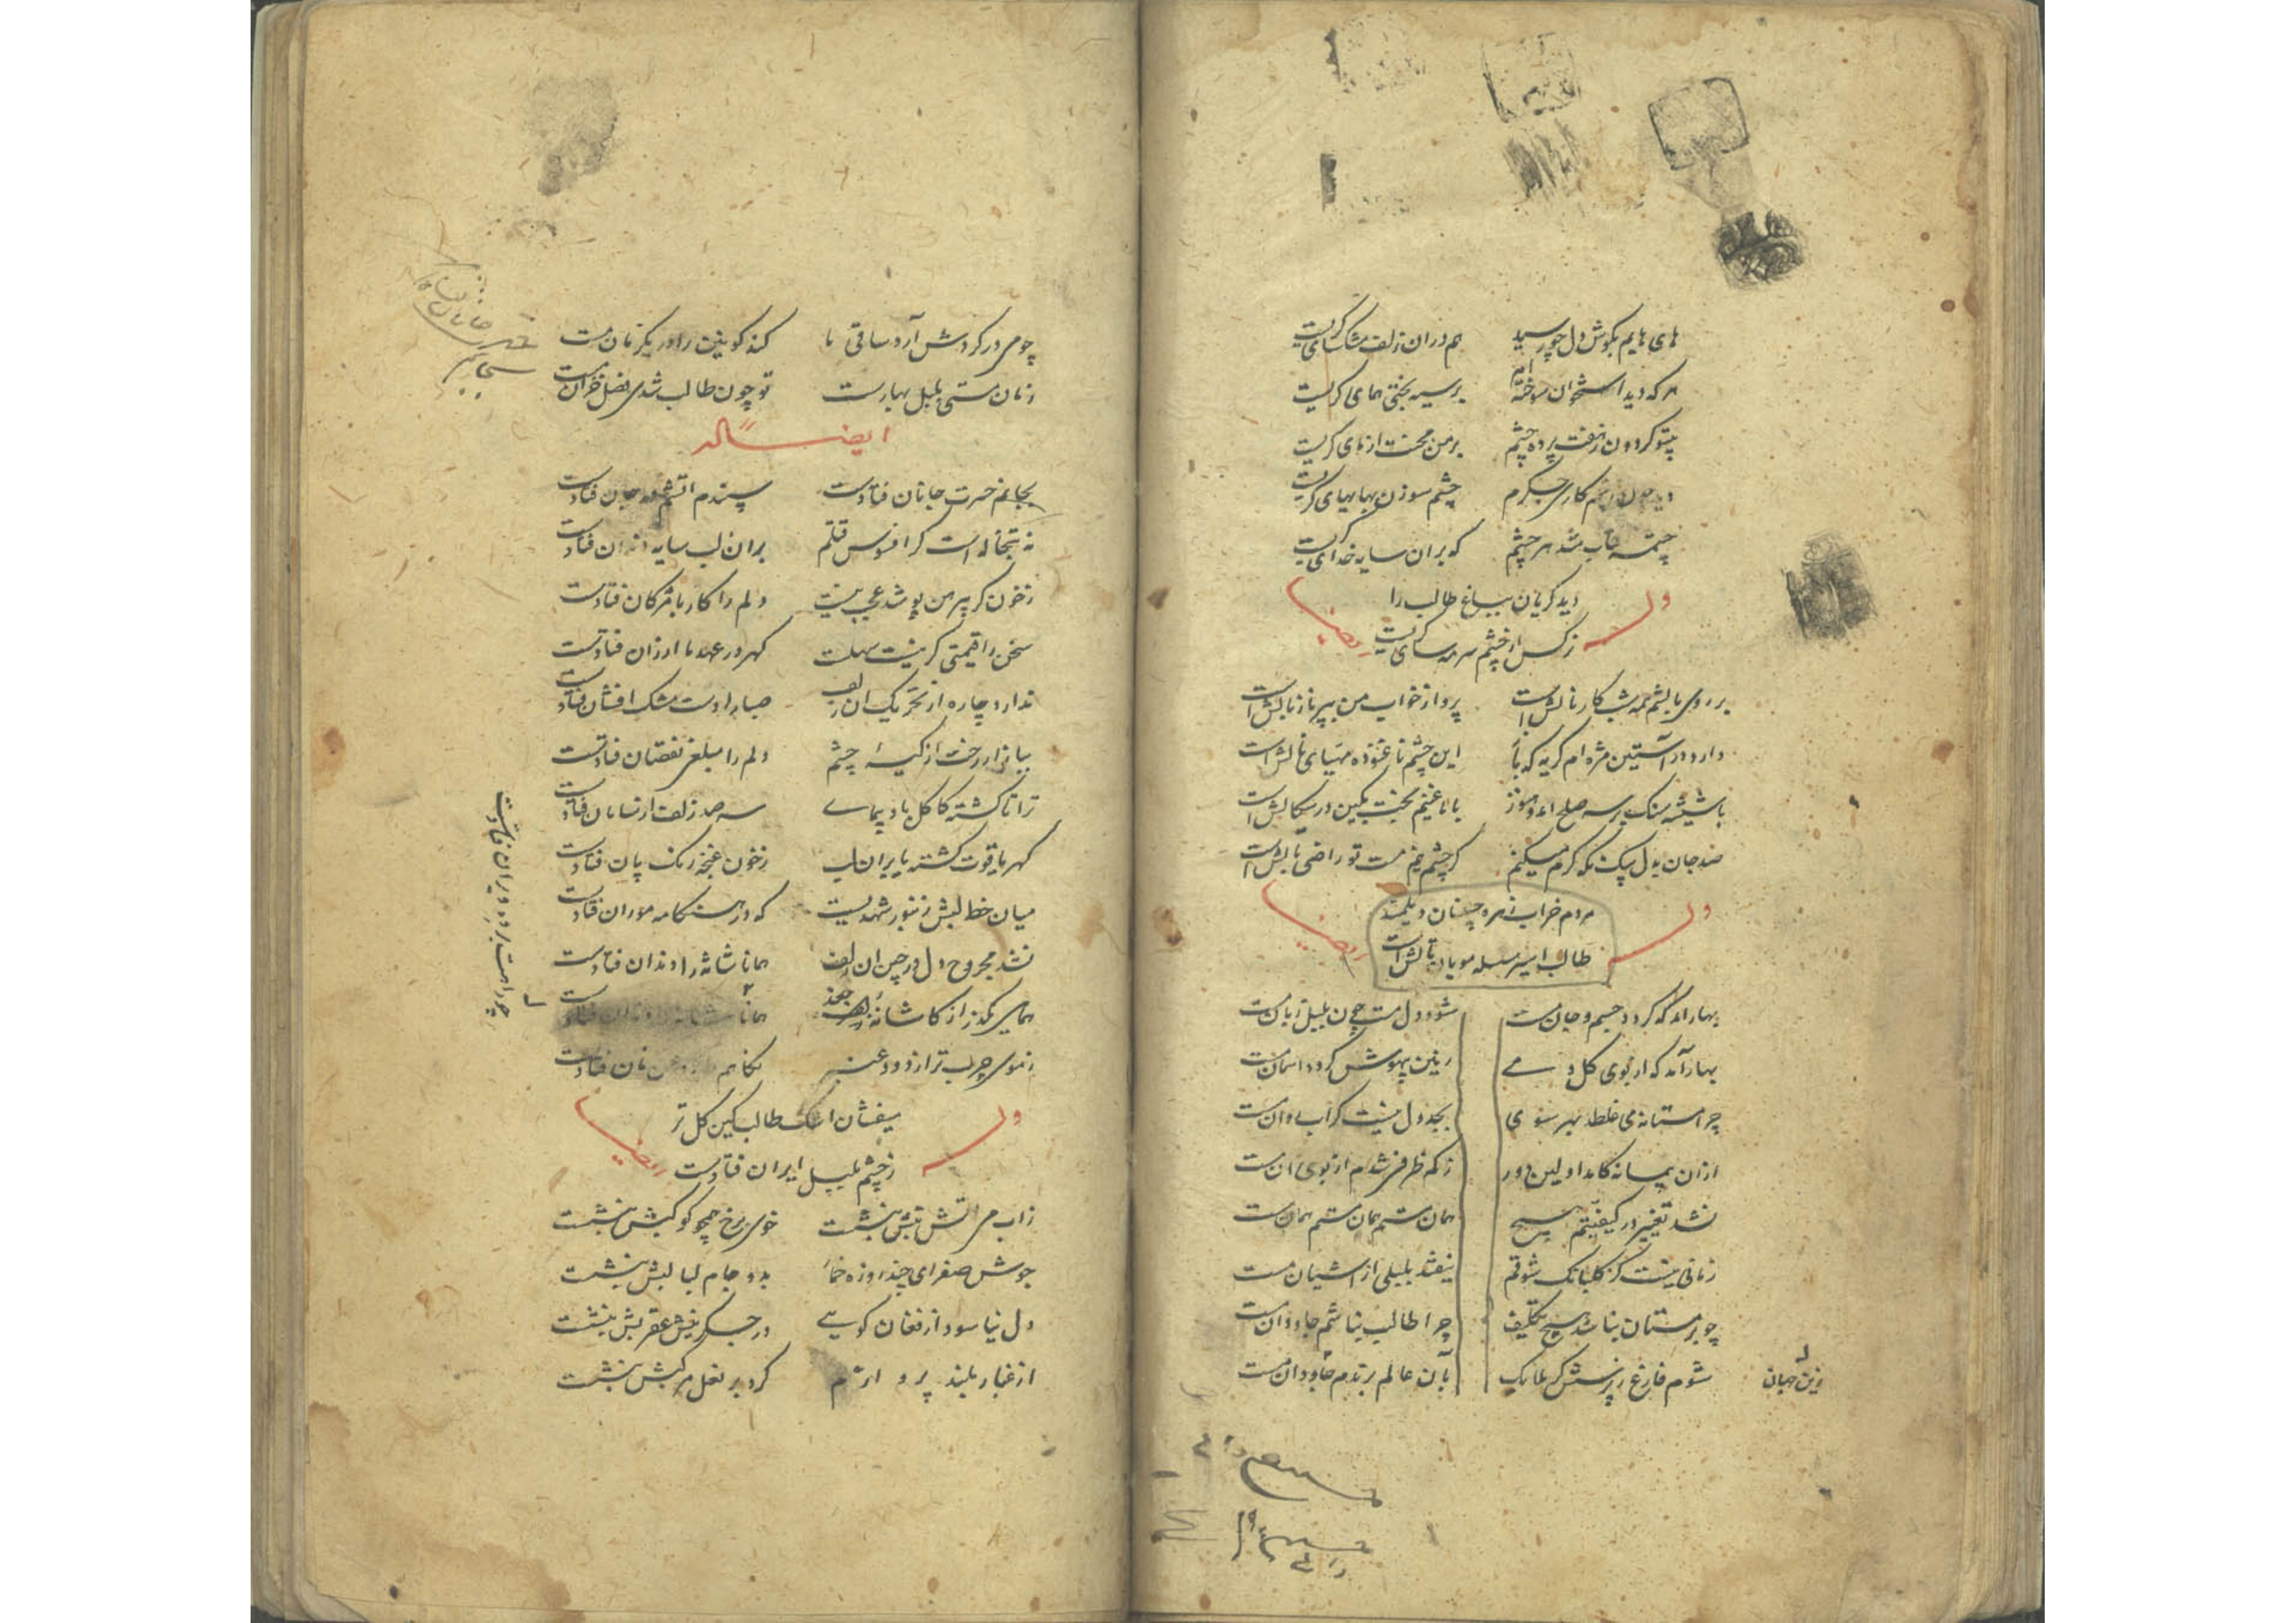 های هایم بکوش دل چو رسید هم دران زلف مشکسای کریست
هر که دید استخوان سوخته ام بر سیه بختی همای کریست
بیتو کردون ز هفت پرده چشم بر من محنت ازمای کریست
کاری جکرم چشم سوزن بهایهای کریست
چشمه آب شد هر چشم که بران سایه خدای کریست
دید کریان بباغ طالب را
وله ایضا
نرکس از چشم سرمه سای کریست
بر روی بالشم همه شب کار نالش است پرواز خواب من بپر ناز بالش است
دارد در آستین مژه ام کریه که با این چشم ناغنوده مهیای مالش است
با شیشه سنک بر سه صلح امد و هنوز با ما غنیم بخت بکین در سکالش است
صد جان بدل بیک نکه کرم میکنم کر چشم نیم مست تو راضی بالش است
مردم خراب زهره جبینان دیلمند
وله ایضا
طالب اسیر سلسله مویان تالش است
بهار امد که کردد جسم و جان مست شود دل مست چون بلبل زبان مست
بهار آمد که از بوی کل و مے زمین بیهوش کردد اسمان مست
چرا مستانه می غلطد بهر سوی بجدول نیست کر آب روان مست
ازان پیمانه کامد اولین دور ز کم ظرفی شدم از بوی ان مست
نشد تغییر در کیفیتم هیچ همان مستم همان مستم همان مست
زمانی نیست کز کلبانک شوقم نیفتد بلبلی از اشیان مست
چو بر مستان نباشد هیچ تکلیف چرا طالب نباشم جاودان مست
شوم فارغ ز پرسش کر ملایک بآن عالم برندم جاودان مست
زین جهان
چو می در کردش آرد ساقی ما کند کونین را در یکزمان مست
زمان مستی بلبل بهارست تو چون طالب شدی فصل خزان مست
ایضاً له
بجانم حسرت جانان فتادست سپندم اتشم در جان فتادست
نه تبخاله است کز افسوس قتلم بران لب سایه دندان فتادست
ز خون کر پیرهن پوشد عجب نیست دلم را کار با مژکان فتادست
سخن را قیمتی کر نیست سهلست کهر در عهد ما ارزان فتادست
ندارد چاره از تحریک ان زلف صبا را دست مشک افشان فتادست
ببازار رخت از کیسهٔ چشم دلم را مبلغی نقصان فتادست
ترا تا کشته کاکل باد پیماے سه صد زلف از سامان فتادست
کهر یاقوت کشته یا بران لب ز خون غنچه رنک پان فتادست
میان خط لبش زنبور شهدیست که در هنکامه موران فتادست
نشد مجروح دل در چین ان زلف همانا شانه را دندان فتادست
همای مکذر از کاشانه جغد همانا شانه را دندان فتادست
چو راهت بر ده ویران فتادست
ز موی چرب تر از دود عنبر فتادست
میفشان اشک طالب کین کل تر
وله ایضا
ز چشم بلبل ایران فتادست
زاب می اتش تبش ننشست خوی برخ همچو کوکبش ننشست
جوش صفرای چند روزه خمار بدو جام لبالبش ننشست
دل نیاسود از فغان کویے در جکر نیش عقربش ننشست
از غبار بلند کرد بر نعل مرکبش ننشست